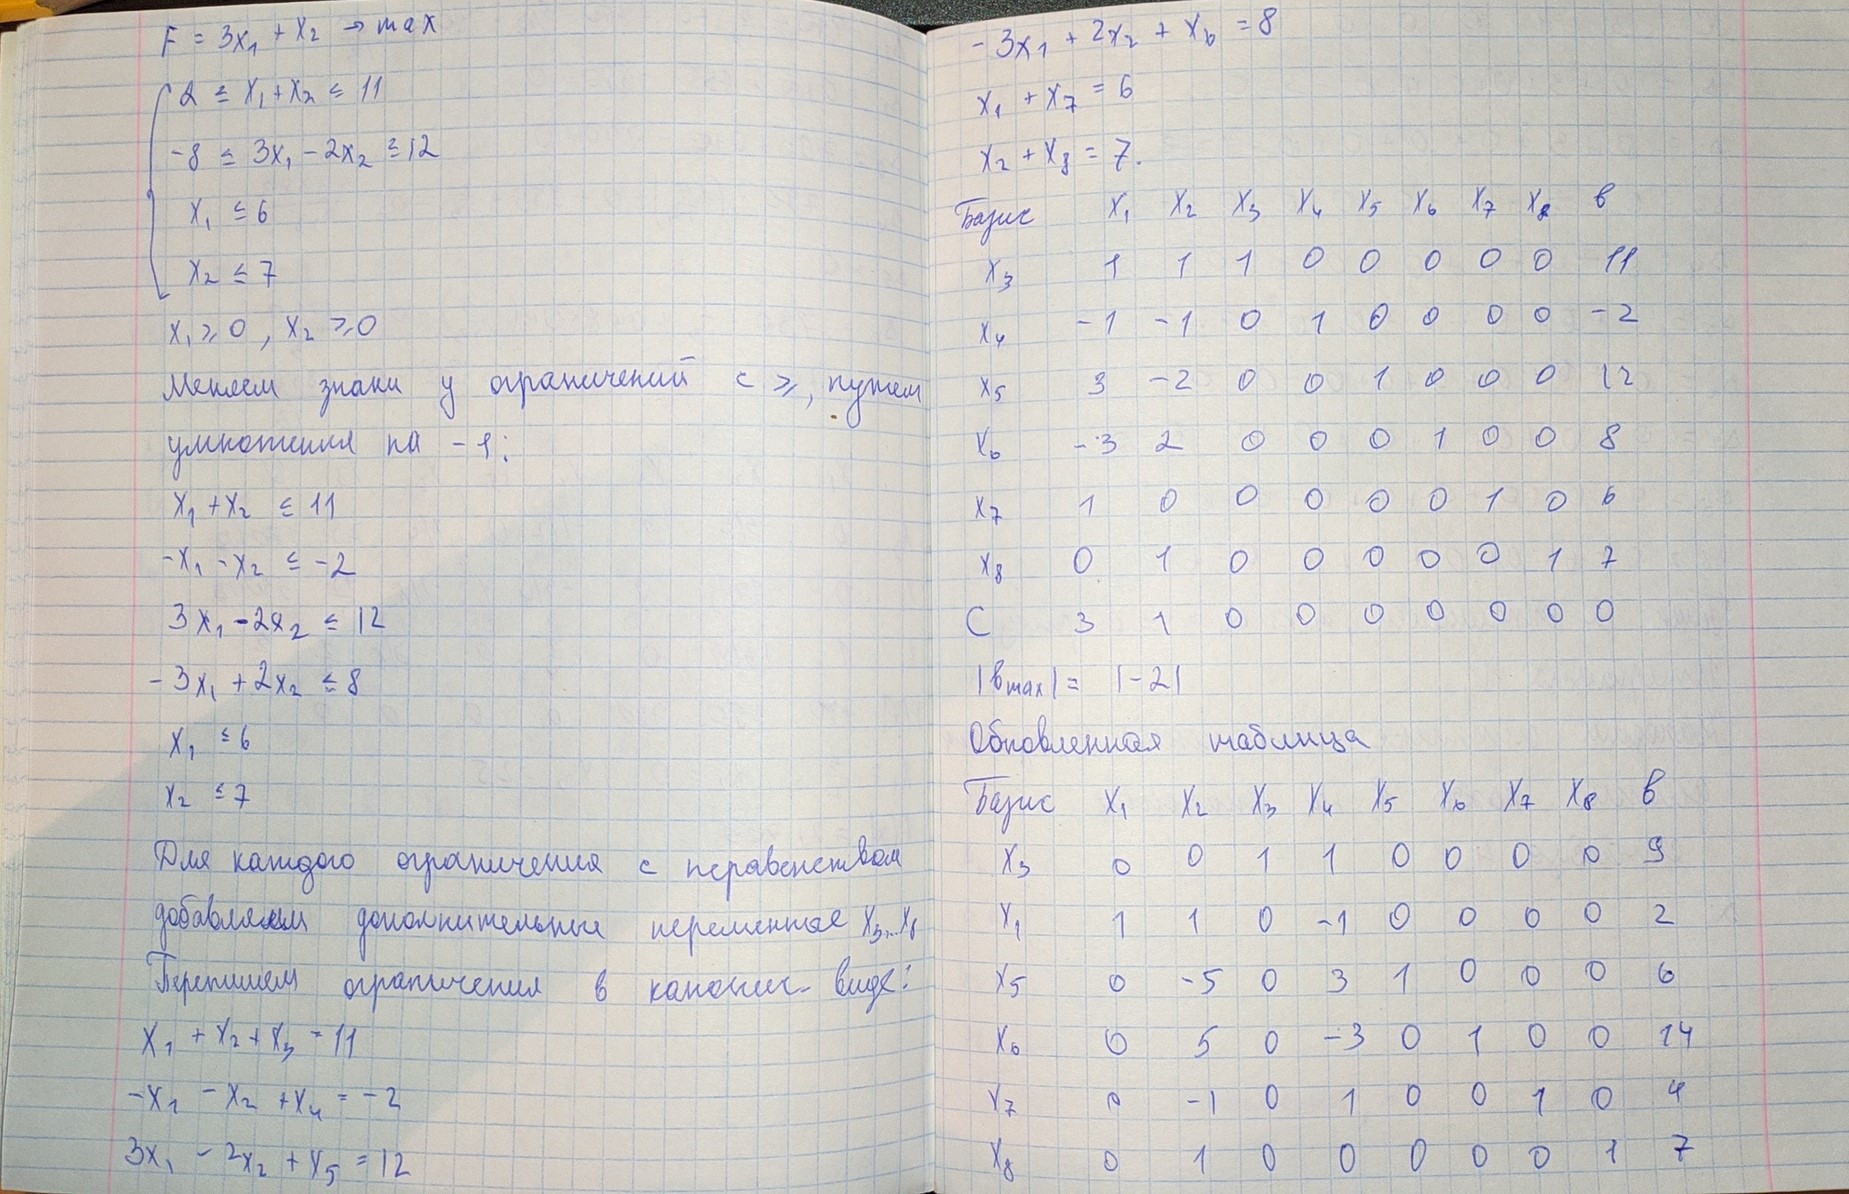 F = 3x₁ + x₂ → max
2 ≤ x₁ + x₂ ≤ 11
-8 ≤ 3x₁ - 2x₂ ≤ 12
x₁ ≤ 6
x₂ ≤ 7
x₁ ≥ 0, x₂ ≥ 0
Меняем знаки у ограничений с ≥, путем
умножения на -1:
x₁ + x₂ ≤ 11
-x₁ - x₂ ≤ -2
3x₁ - 2x₂ ≤ 12
-3x₁ + 2x₂ ≤ 8
x₁ ≤ 6
x₂ ≤ 7
Для каждого ограничения с неравенством
добавляем дополнительные переменные x₃...x₈
Перепишем ограничения в канонич. виде:
x₁ + x₂ + x₃ = 11
-x₁ - x₂ + x₄ = -2
3x₁ - 2x₂ + x₅ = 12
-3x₁ + 2x₂ + x₆ = 8
x₁ + x₇ = 6
x₂ + x₈ = 7.
Базис x₁ x₂ x₃ x₄ x₅ x₆ x₇ x₈ в
x₃ 1 1 1 0 0 0 0 0 11
x₄ -1 -1 0 1 0 0 0 0 -2
x₅ 3 -2 0 0 1 0 0 0 12
x₆ -3 2 0 0 0 1 0 0 8
x₇ 1 0 0 0 0 0 1 0 6
x₈ 0 1 0 0 0 0 0 1 7
C 3 1 0 0 0 0 0 0 0
|вmax| = |-2|
Обновленная таблица
Базис x₁ x₂ x₃ x₄ x₅ x₆ x₇ x₈ в
x₃ 0 0 1 1 0 0 0 0 9
x₁ 1 1 0 -1 0 0 0 0 2
x₅ 0 -5 0 3 1 0 0 0 6
x₆ 0 5 0 -3 0 1 0 0 14
x₇ 0 -1 0 1 0 0 1 0 4
x₈ 0 1 0 0 0 0 0 1 7